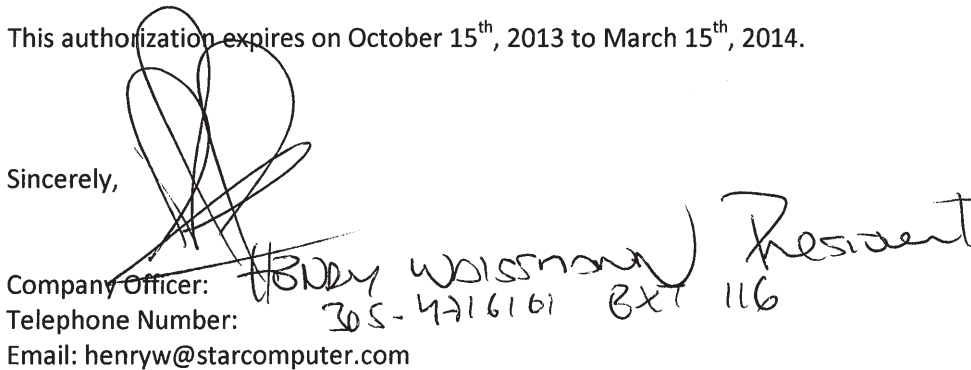 This authorization expires on October 15th, 2013 to March 15th, 2014.
Sincerely,
Company Officer: Henry Waissmann President
Telephone Number: 305-4716101 EXT 116
Email: henryw@starcomputer.com